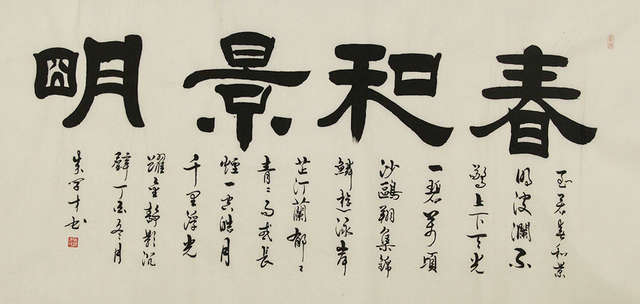 春和景明
至若春和景
明波瀾不
驚上下天光
一碧萬頃
沙鷗翔集錦
鱗游泳岸
芷汀蘭郁々
青々而或長
煙一空皓月
千里浮光
躍金静影沉
璧丁酉冬月
朱学才书